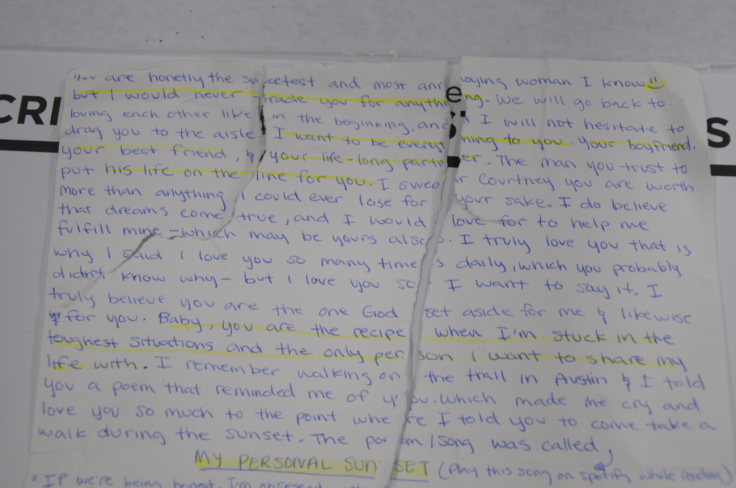 You are honetly the sweetest and most annoying woman I know
but I would never trade you for anything. We will go back to
loving each other like in the beginning, and I will not hesitate to
drag you to the aisle. I want to be everything to you. your boyfriend.
your best friend, & your life-long partner. The man you trust to
put his life on the line for you. I swear Courtney you are worth
more than anything I could ever lose for your sake. I do believe
that dreams come true, and I would love for to help me
fulfill mine - which may be yours also. I truly love you that is
why I said I love you so many times daily, which you probably
didn't know why - but I love you so I want to say it. I
truly believe you are the one God set aside for me & likewise
for you. Baby, you are the recipe when I'm stuck in the
toughest situations and the only person I want to share my
life with. I remember walking on the trail in Austin & I told
you a poem that reminded me of you. which made me cry and
love you so much to the point where I told you to come take a
walk during the sunset. The poem/song was called,
MY PERSONAL SUNSET (Play this song on spotify while reading)
"If we're being honest, I'm obsessed
CRI
e
S